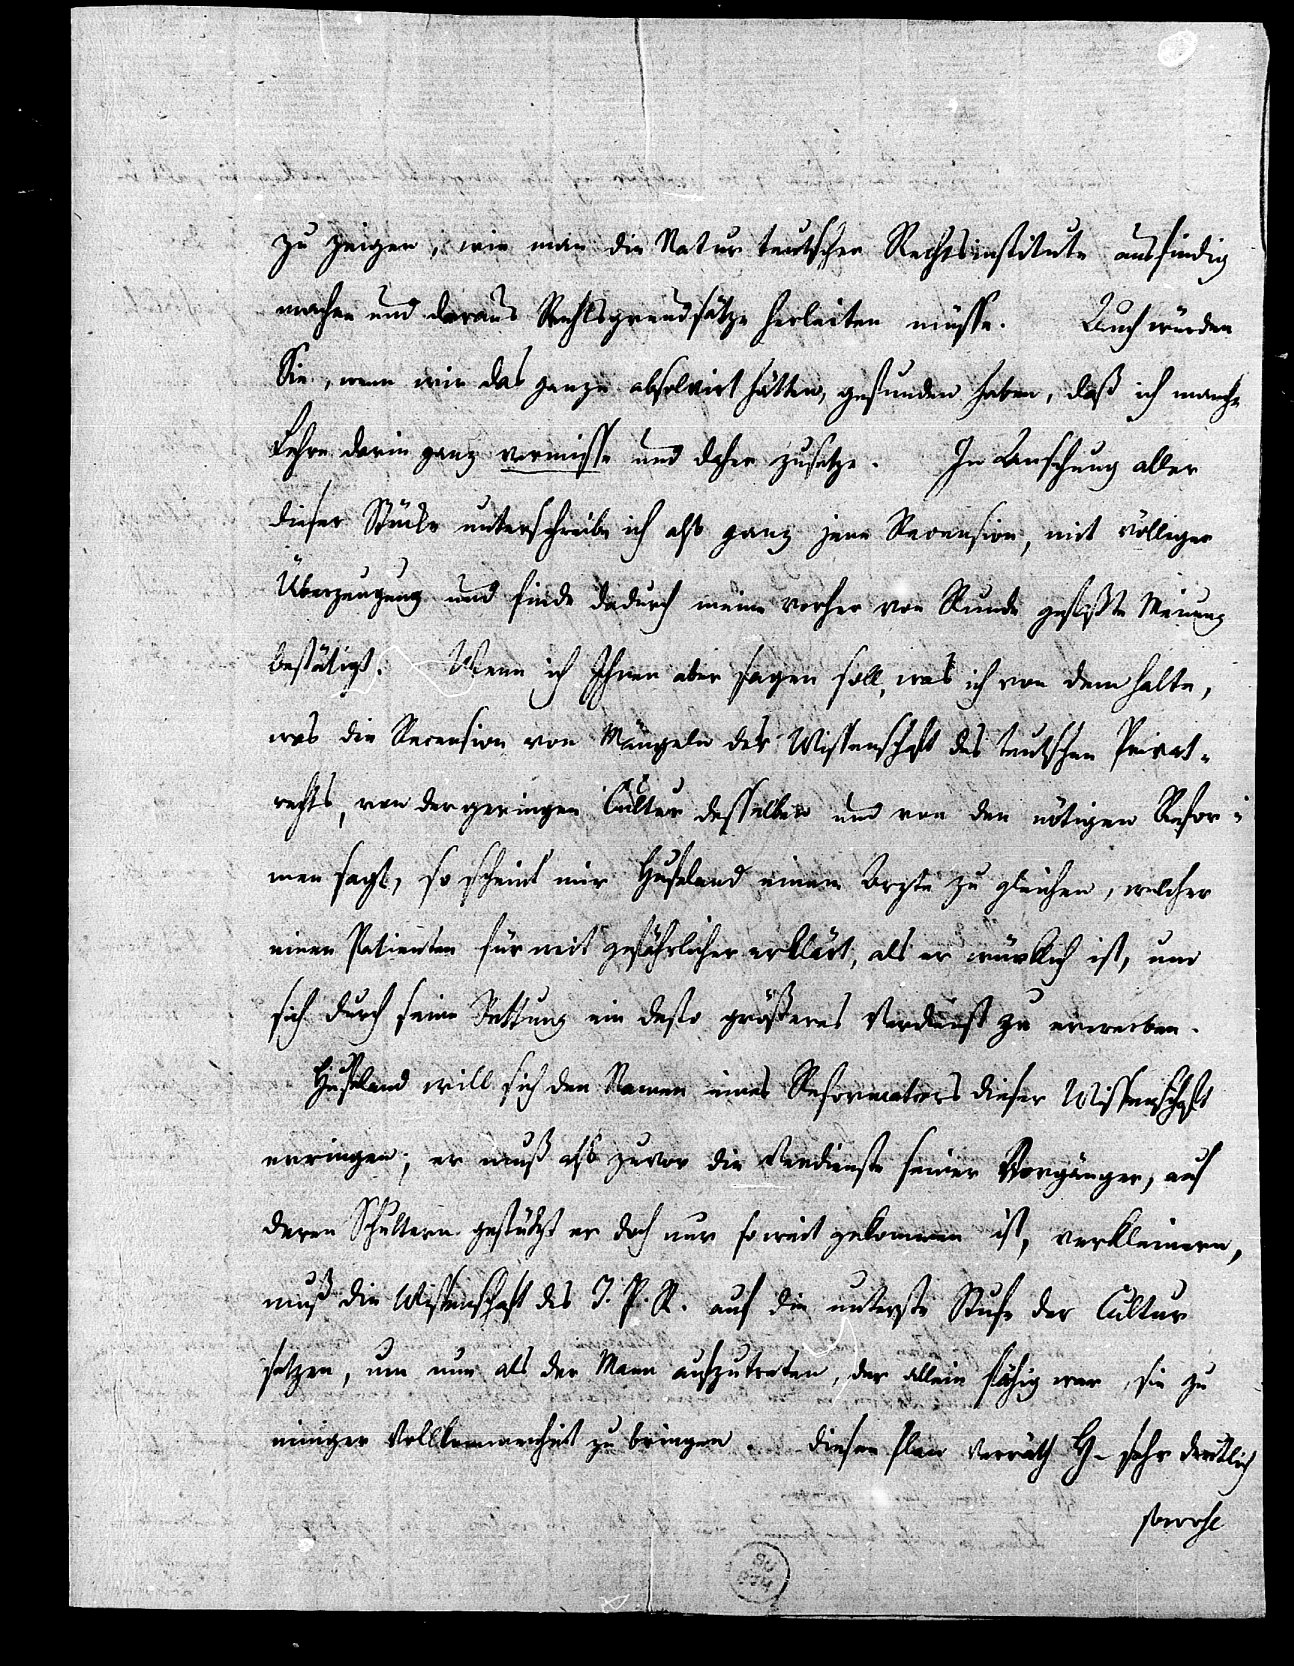 zu zeigen, wie man die Natur teutscher Rechtsinstitute ausfindig
machen und daraus Rechtsgrundsätze herleiten müsse. Auch würden
Sie, wenn wir das ganze absolvirt hätten, gefunden haben, daß ich manche
Lehre darin ganz vermisse und daher zusetze. In Ansehung aller
dieser Stücke unterschreibe ich also ganz jene Recension, mit völliger
Überzeugung und finde dadurch meine vorher von Runde gefaßte Meinung
bestätigt. Wenn ich Ihnen aber sagen soll, was ich von dem halte,
was die Recension von Mängeln der Wissenschaft des teutschen Privat-
rechts, von der geringen Cultur desselben und von den nötigen Refor-
men sagt, so scheint mir Hufeland einem Arzte zu gleichen, welcher
einen Patienten für weit gefährlicher erklärt, als er würklich ist, um
sich durch seine Rettung ein desto größeres Verdienst zu erwerben.
Hufeland will sich den Namen eines Reformators dieser Wissenschaft
erringen; er muß also zuvor die Verdienste seiner Vorgänger, auf
deren Schultern gestützt er doch nur so weit gekommen ist, verkleinern,
muß die Wissenschaft des T. P. R. auf die unterste Stufe der Cultur
setzen, um nun als der Mann aufzutreten, der allein fähig war, sie zu
einiger Vollkommenheit zu bringen. Diesen Plan verräth H- sehr deutlich
sowohl